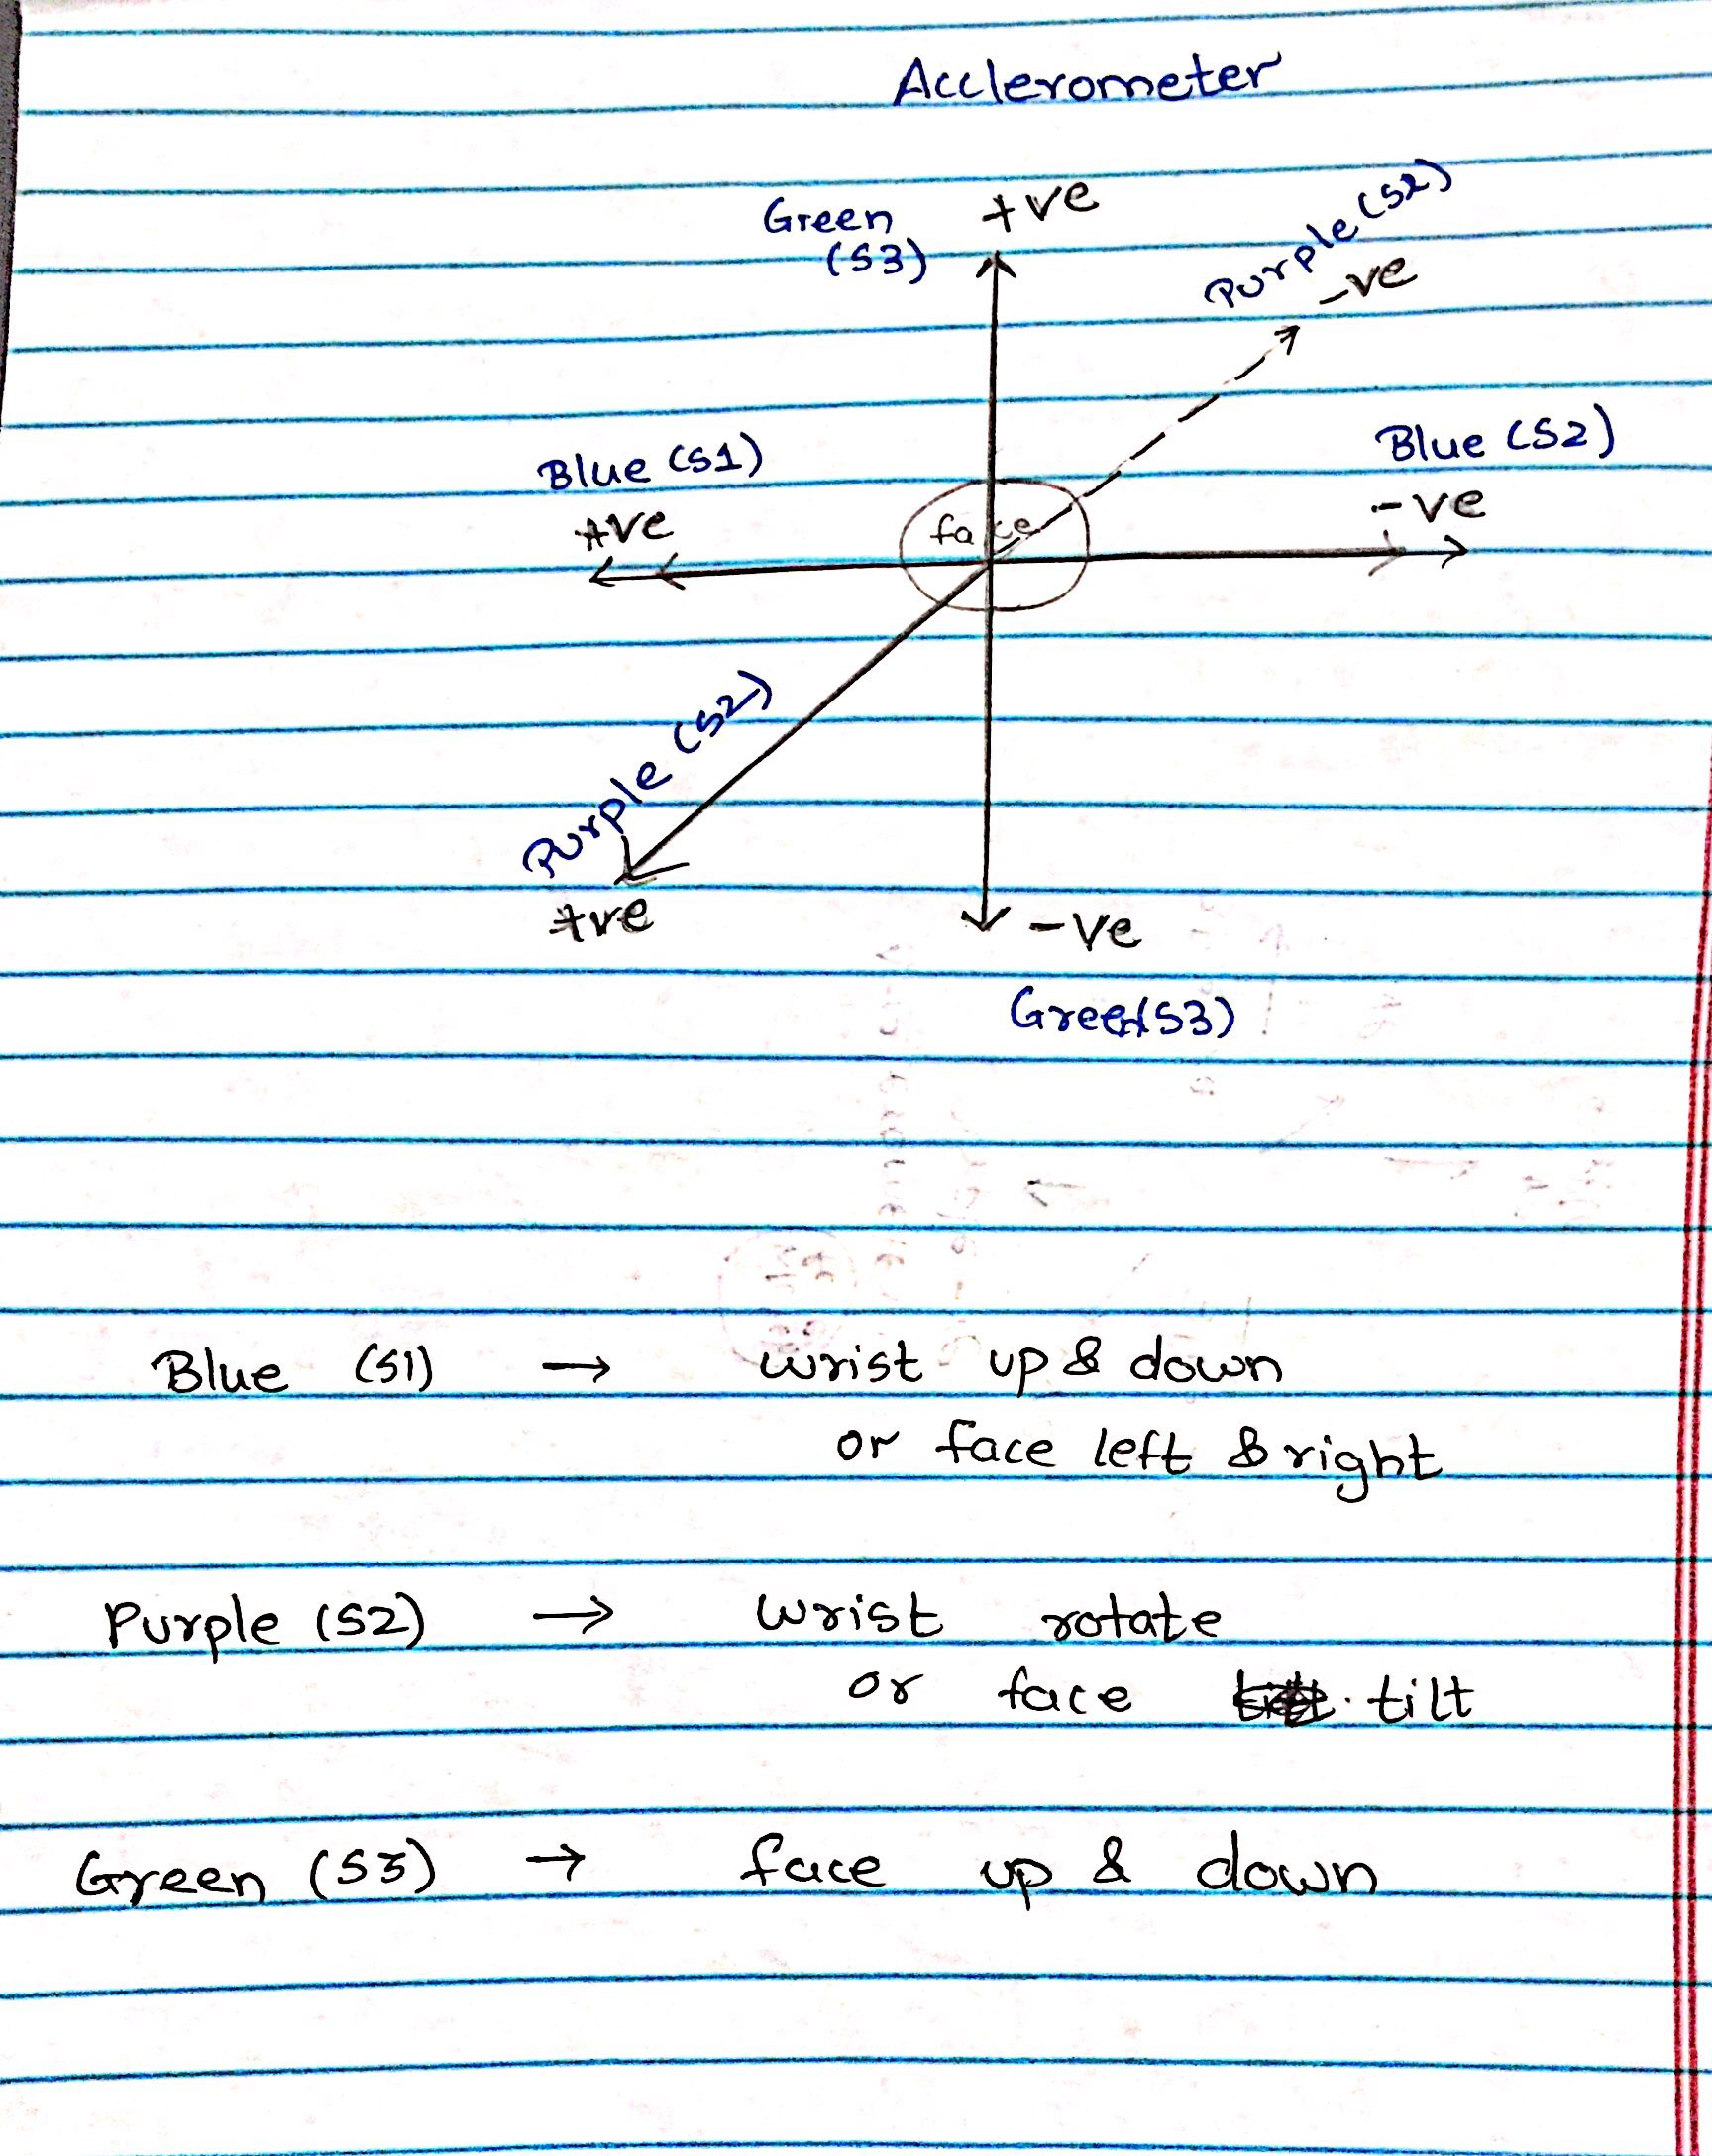 Acclerometer
Green
(S3)
+ve
Purple (S2)
-ve
Blue (S1)
+ve
Blue (S2)
-ve
face
Purple (S2)
+ve
-ve
Green(S3)
Blue (S1) → wrist up & down
or face left & right
Purple (S2) → wrist rotate
or face tilt
Green (S3) → face up & down